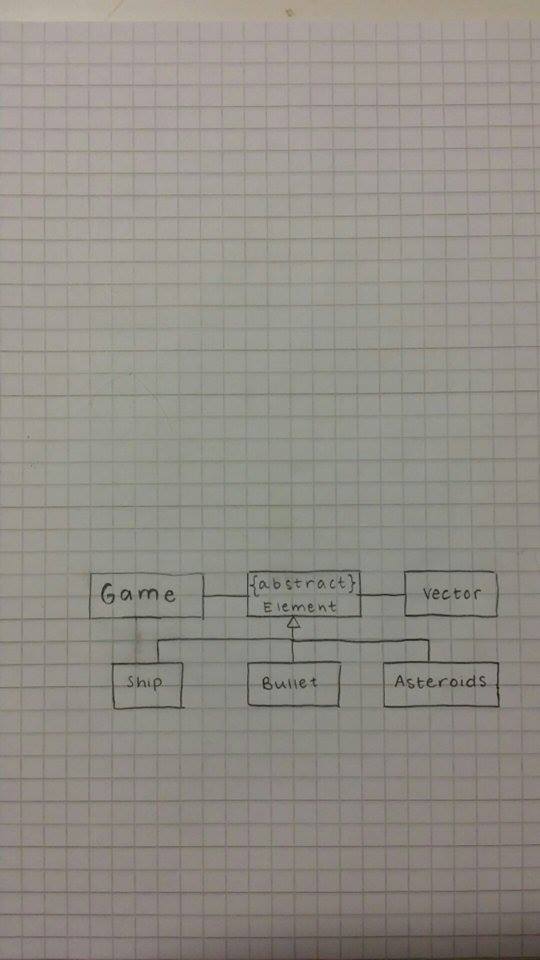 Game
{abstract}
Element
Vector
Ship
Bullet
Asteroids